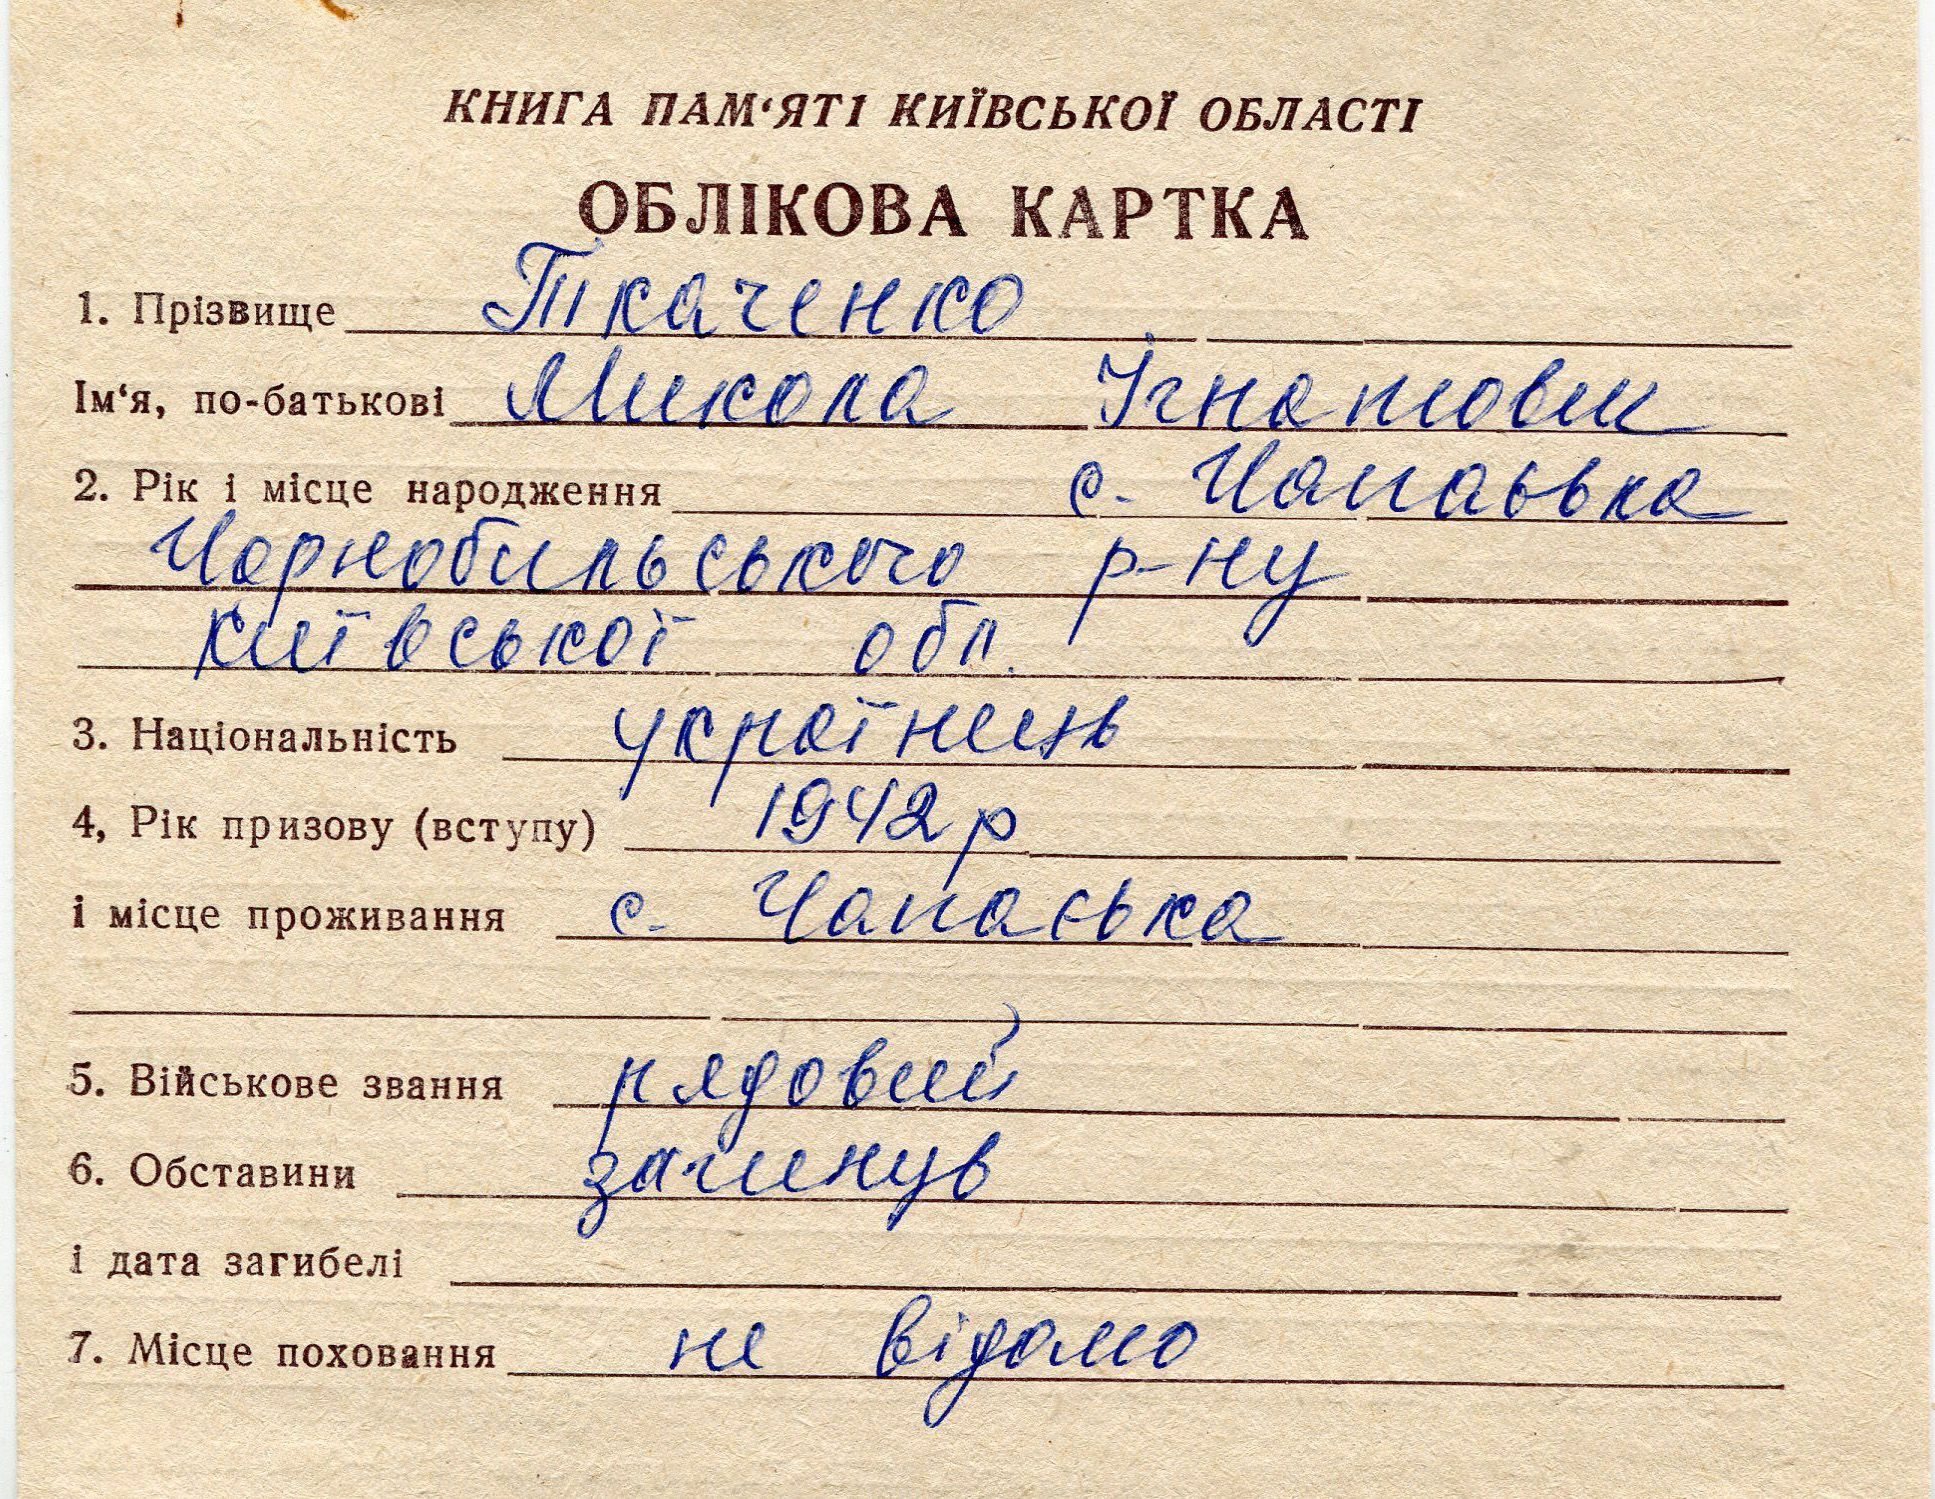 КНИГА ПАМ‘ЯТІ КИЇВСЬКОЇ ОБЛАСТІ
ОБЛІКОВА КАРТКА
1. Прізвище Ткаченко
Ім‘я, по-батькові Микола Ігнатович
2. Рік і місце народження с. Чапаєвка
Чорнобильського р-ну
Київської обл.
3. Національність українець
4, Рік призову (вступу) 1942 р
і місце проживання с. Чапаєвка
5. Військове звання рядовий
6. Обставини загинув
і дата загибелі
7. Місце поховання не відомо